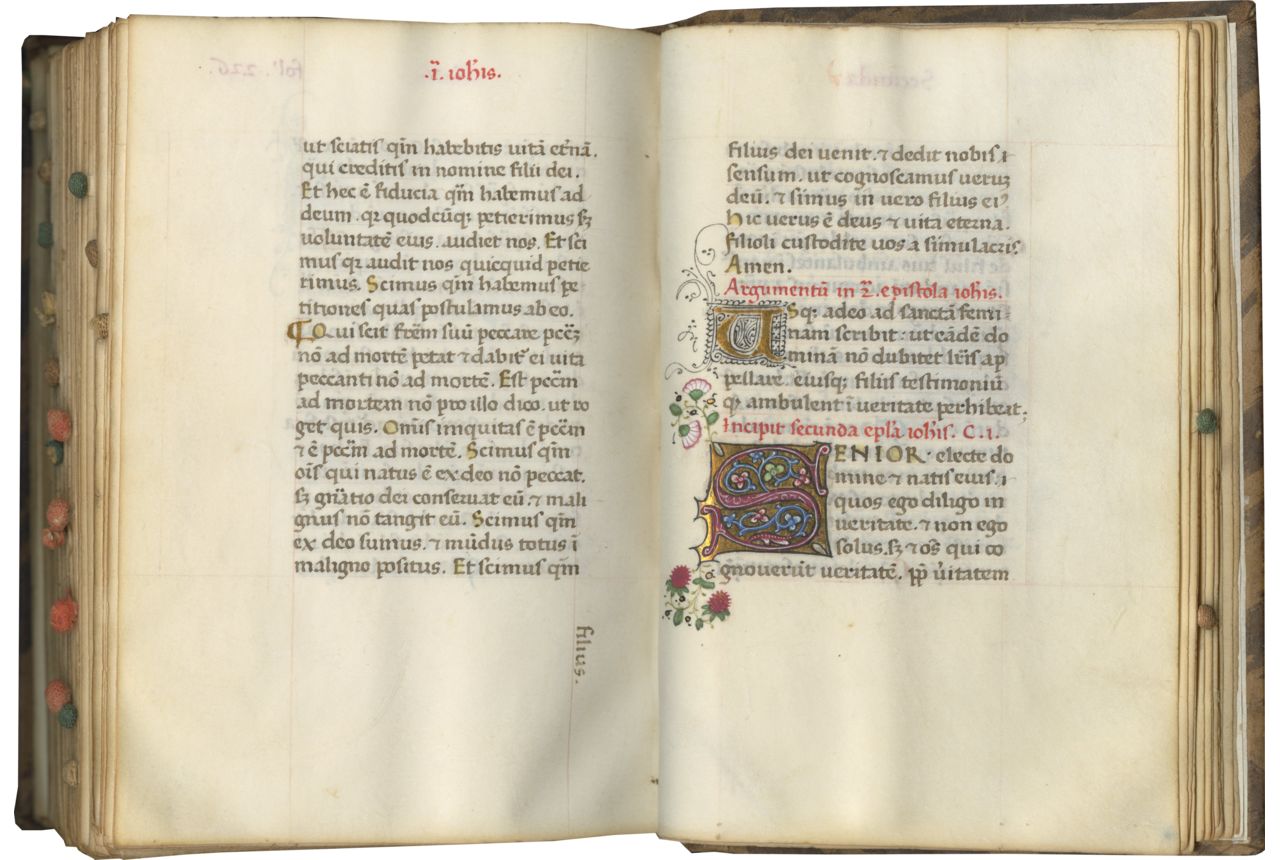 ·ī. ioħis.
ut sciatis qm̄ habebitis uitā et̄nā.
qui creditis in nomine filii dei.
Et hec ē fiducia qm̄ habemus ad
deum. qꝛ quodcūqꝫ petierimus sꝫ
uoluntatē eius. audiet nos. Et sci
mus qꝛ audit nos quicquid petie
rimus. Scimus qm̄ habemus pe
titiones quas postulamus ab eo.
Qui scit fr̄em suū peccare pec̄ꝫ
nō ad mortē petat ⁊ dabit̉ ei uita
peccanti nō ad mortē. Est pec̄m
ad mortem nō pro illo dico. ut ro
get quis. Om̄is iniquitas ē pec̄m
⁊ ē pec̄m ad mortē. Scimus qm̄
oīs qui natus ē ex deo nō peccat.
sꝫ gn̄atio dei conseruat eū ⁊ mali
gnus nō tangit eū. Scimus qm̄
ex deo sumus. ⁊ mūdus totus ī
maligno positus. Et scimus qm̄
filius.
filius dei uenit. ⁊ dedit nobis
sensum. ut cognoscamus ueruꝫ
deū. ⁊ simus in uero filius eiꝰ
hic uerus ē deus ⁊ uita eterna.
filioli custodite uos a simulacris.
Amen.
Argumentū in .2̄. epistola ioħis.
Usqꝫ adeo ad sanctā femi
nam scribit: ut eādē do
minā nō dubitet lr̄is ap
pellare. eiusqꝫ filiis testimoniū
ꝙ ambulent ī ueritate perhibeat;
Incipit secunda epl̄a ioħis. C. i.
SENIOR electe do
mine ⁊ natis eius.
quos ego diligo in
ueritate. ⁊ non ego
solus. sꝫ ⁊ oēs qui co
gnouerūt ueritatē. pp̄ ūitatem